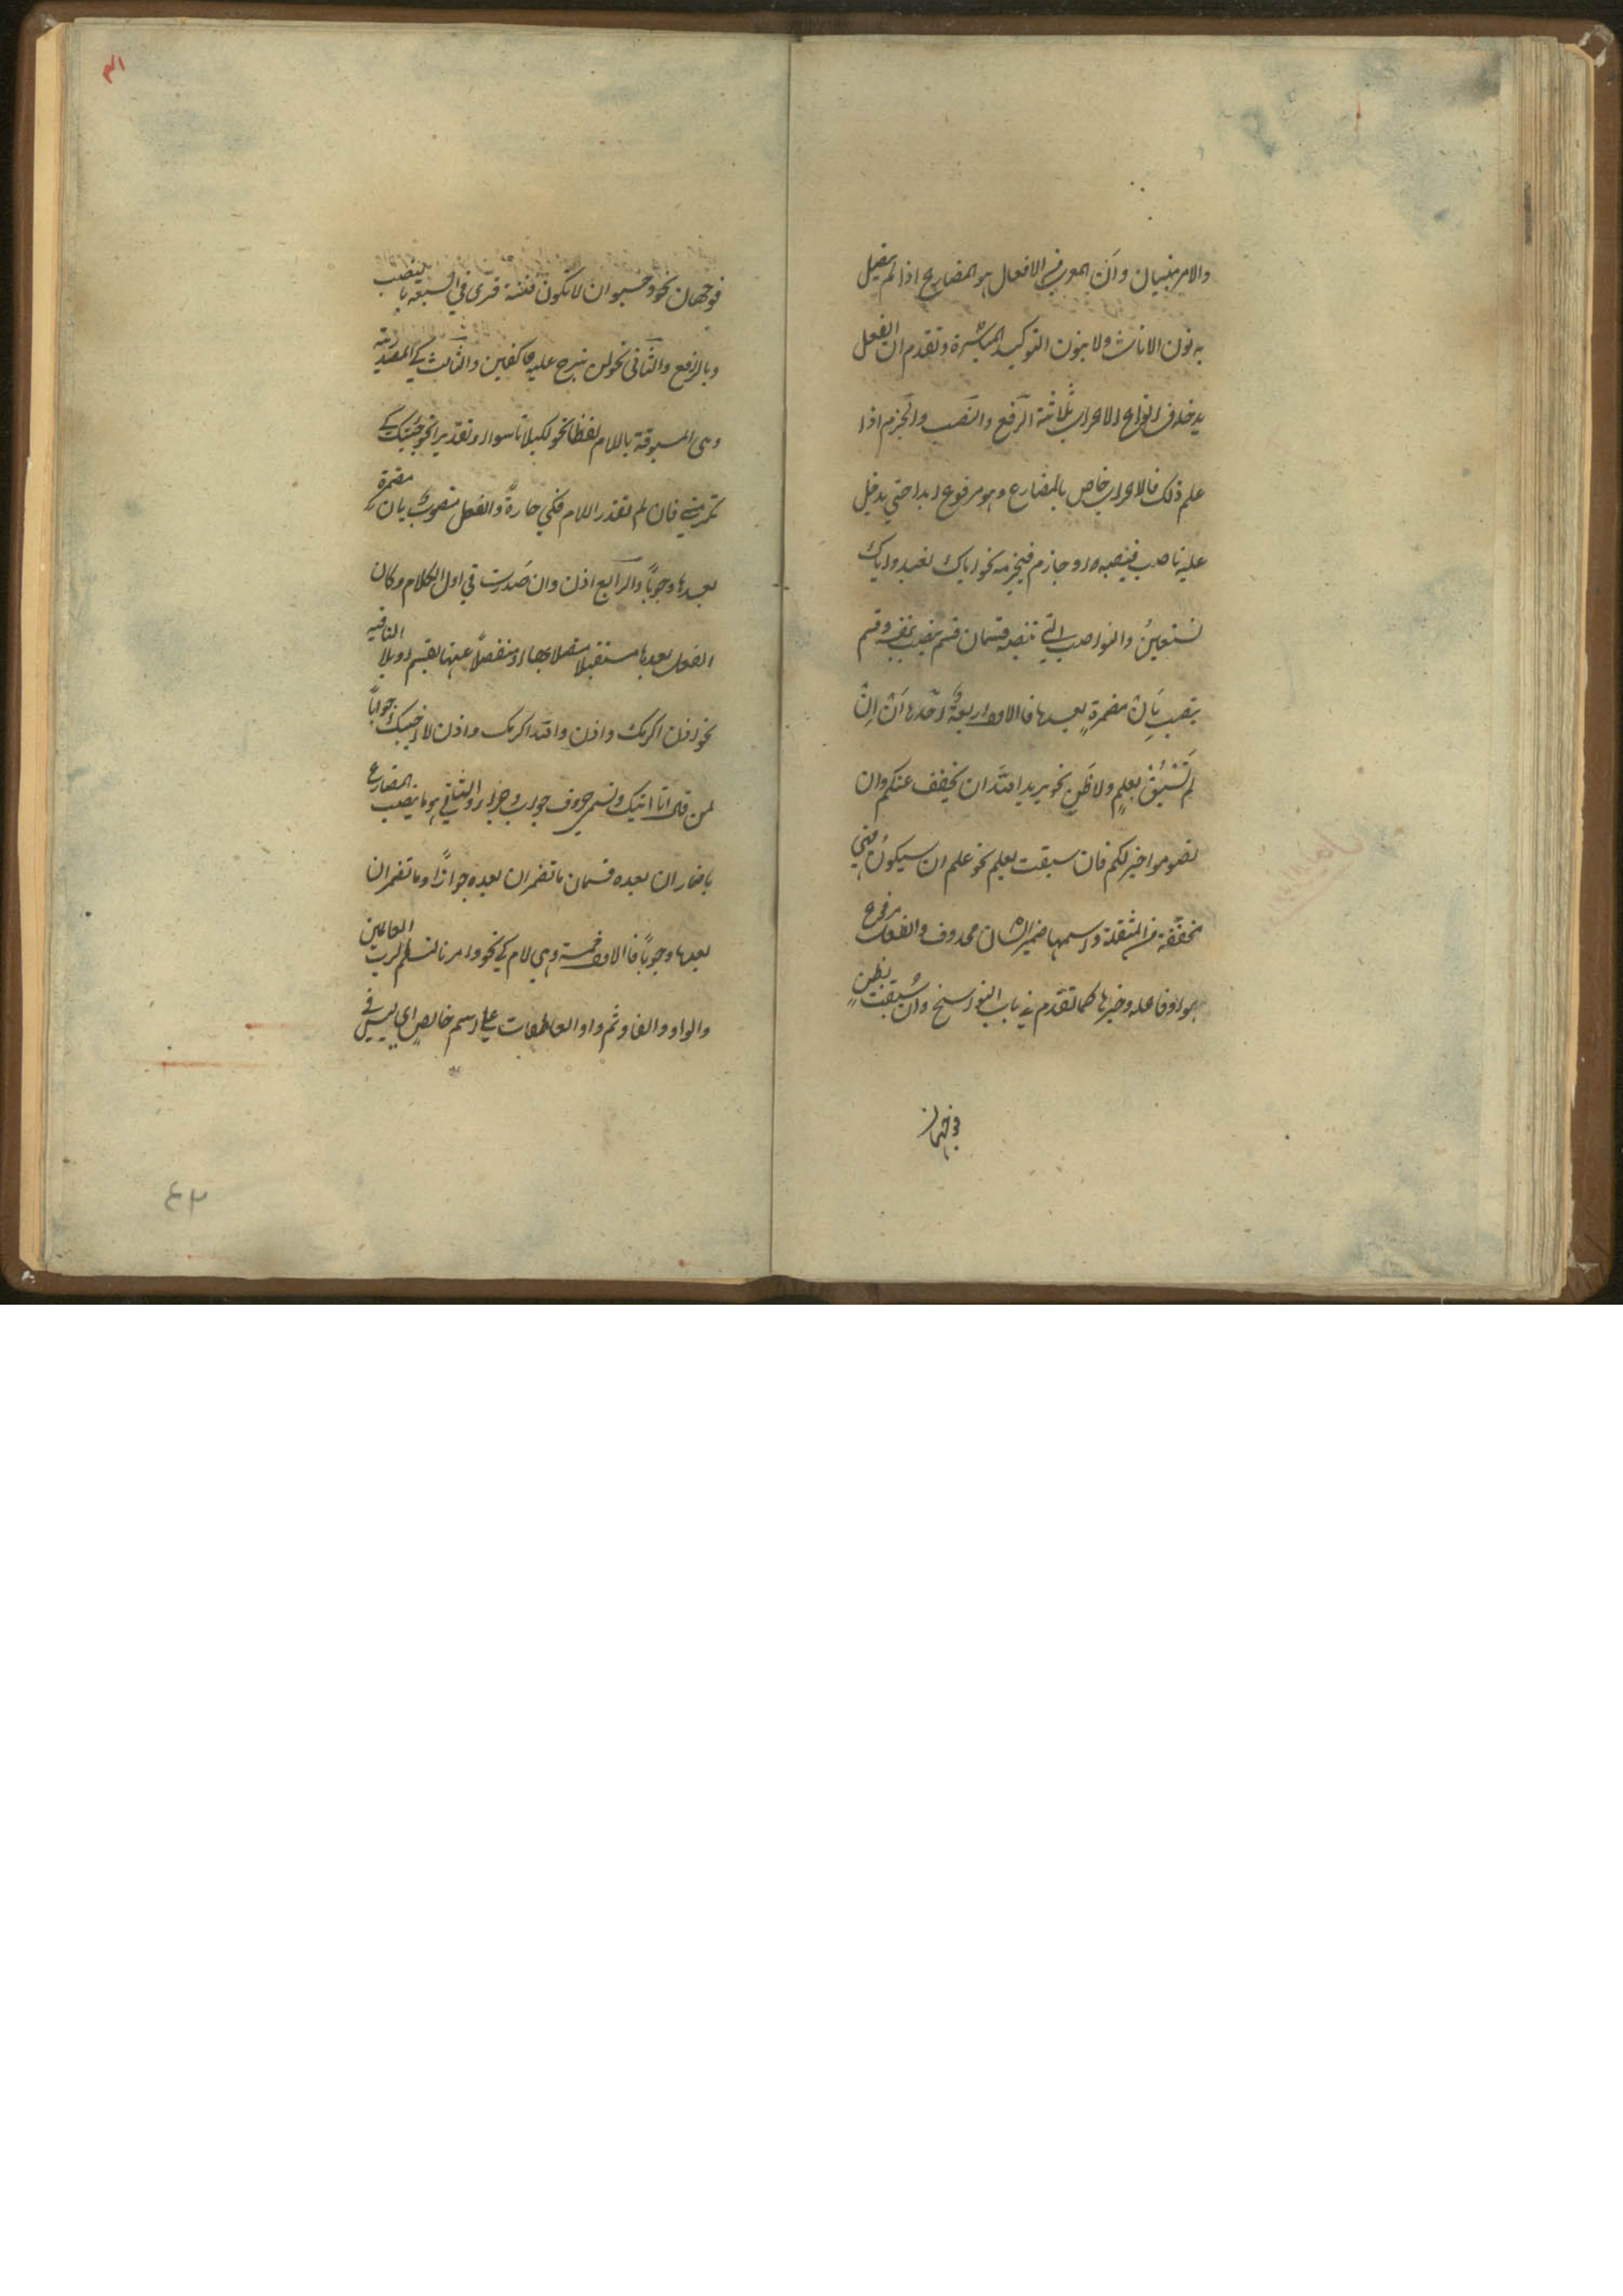 والامر مبنيان وان المعرب من الافعال هو المضارع اذا لم يتصل
به نون الاناث ولا بنون التوكيد المباشرة وتقدم ان الفعل
يدخله من انواع الاعراب ثلاثة الرفع والنصب والجزم اذا
علم ذلك فالاعراب خاص بالمضارع وهو مرفوع ابدا حتي يدخل
عليه ناصب فينصبه او جازم فيجزمه نحو اياك نعبد واياك
نستعين والنواصب التي تنصبه قسمان قسم ينصب بنفسه وقسم
ينصب بان مضمرة بعدها فالاول اربعة احدها ان ان
لم تسبق بعلم ولا ظن نحو يريد الله ان يخفف عنكم وان
تصوموا خير لكم فان سبقت بعلم نحو علم ان سيكون فهي
مخففة من المثقلة واسمها ضمير الشان محذوف والفعل مرفوع
هو وفاعله وخبرها كما تقدم في باب النواسخ وان سبقت بظن
فوجهان
فوجهان نحو وحسبوا ان لا تكون فتنة قرئ في السبعة بالنصب
وبالرفع والثاني نحو لن نبرح عليه عاكفين والثالث كي المصدرية
وهي المسبوقة باللام لفظا نحو لكيلا تاسوا او تقديرا نحو جئتك كي
تكرمني فان لم تقدر اللام فكي جارة والفعل منصوب بان مضمرة
بعدها وجوبا والرابع اذن وان صدرت في اول الكلام وكان
الفعل بعدها مستقبلا متصلا بها او منفصلا عنها بقسم او بلا النافيه
نحو اذن اكرمك واذن والله اكرمك واذن لا اخيبك جوابا
لمن قال انا اتيك وتسمي حرف جواب وجزاء والثاني هو ما ينصب المضارع
باضمار ان بعده قسمان ما تضمر ان بعده جوازا وما تضمر ان
بعدها وجوبا فالاول خمسة وهي لام كي نحو وامرنا لنسلم لرب العالمين
والواو والفا وثم واو العاطفات علي اسم خالص اي ليس في